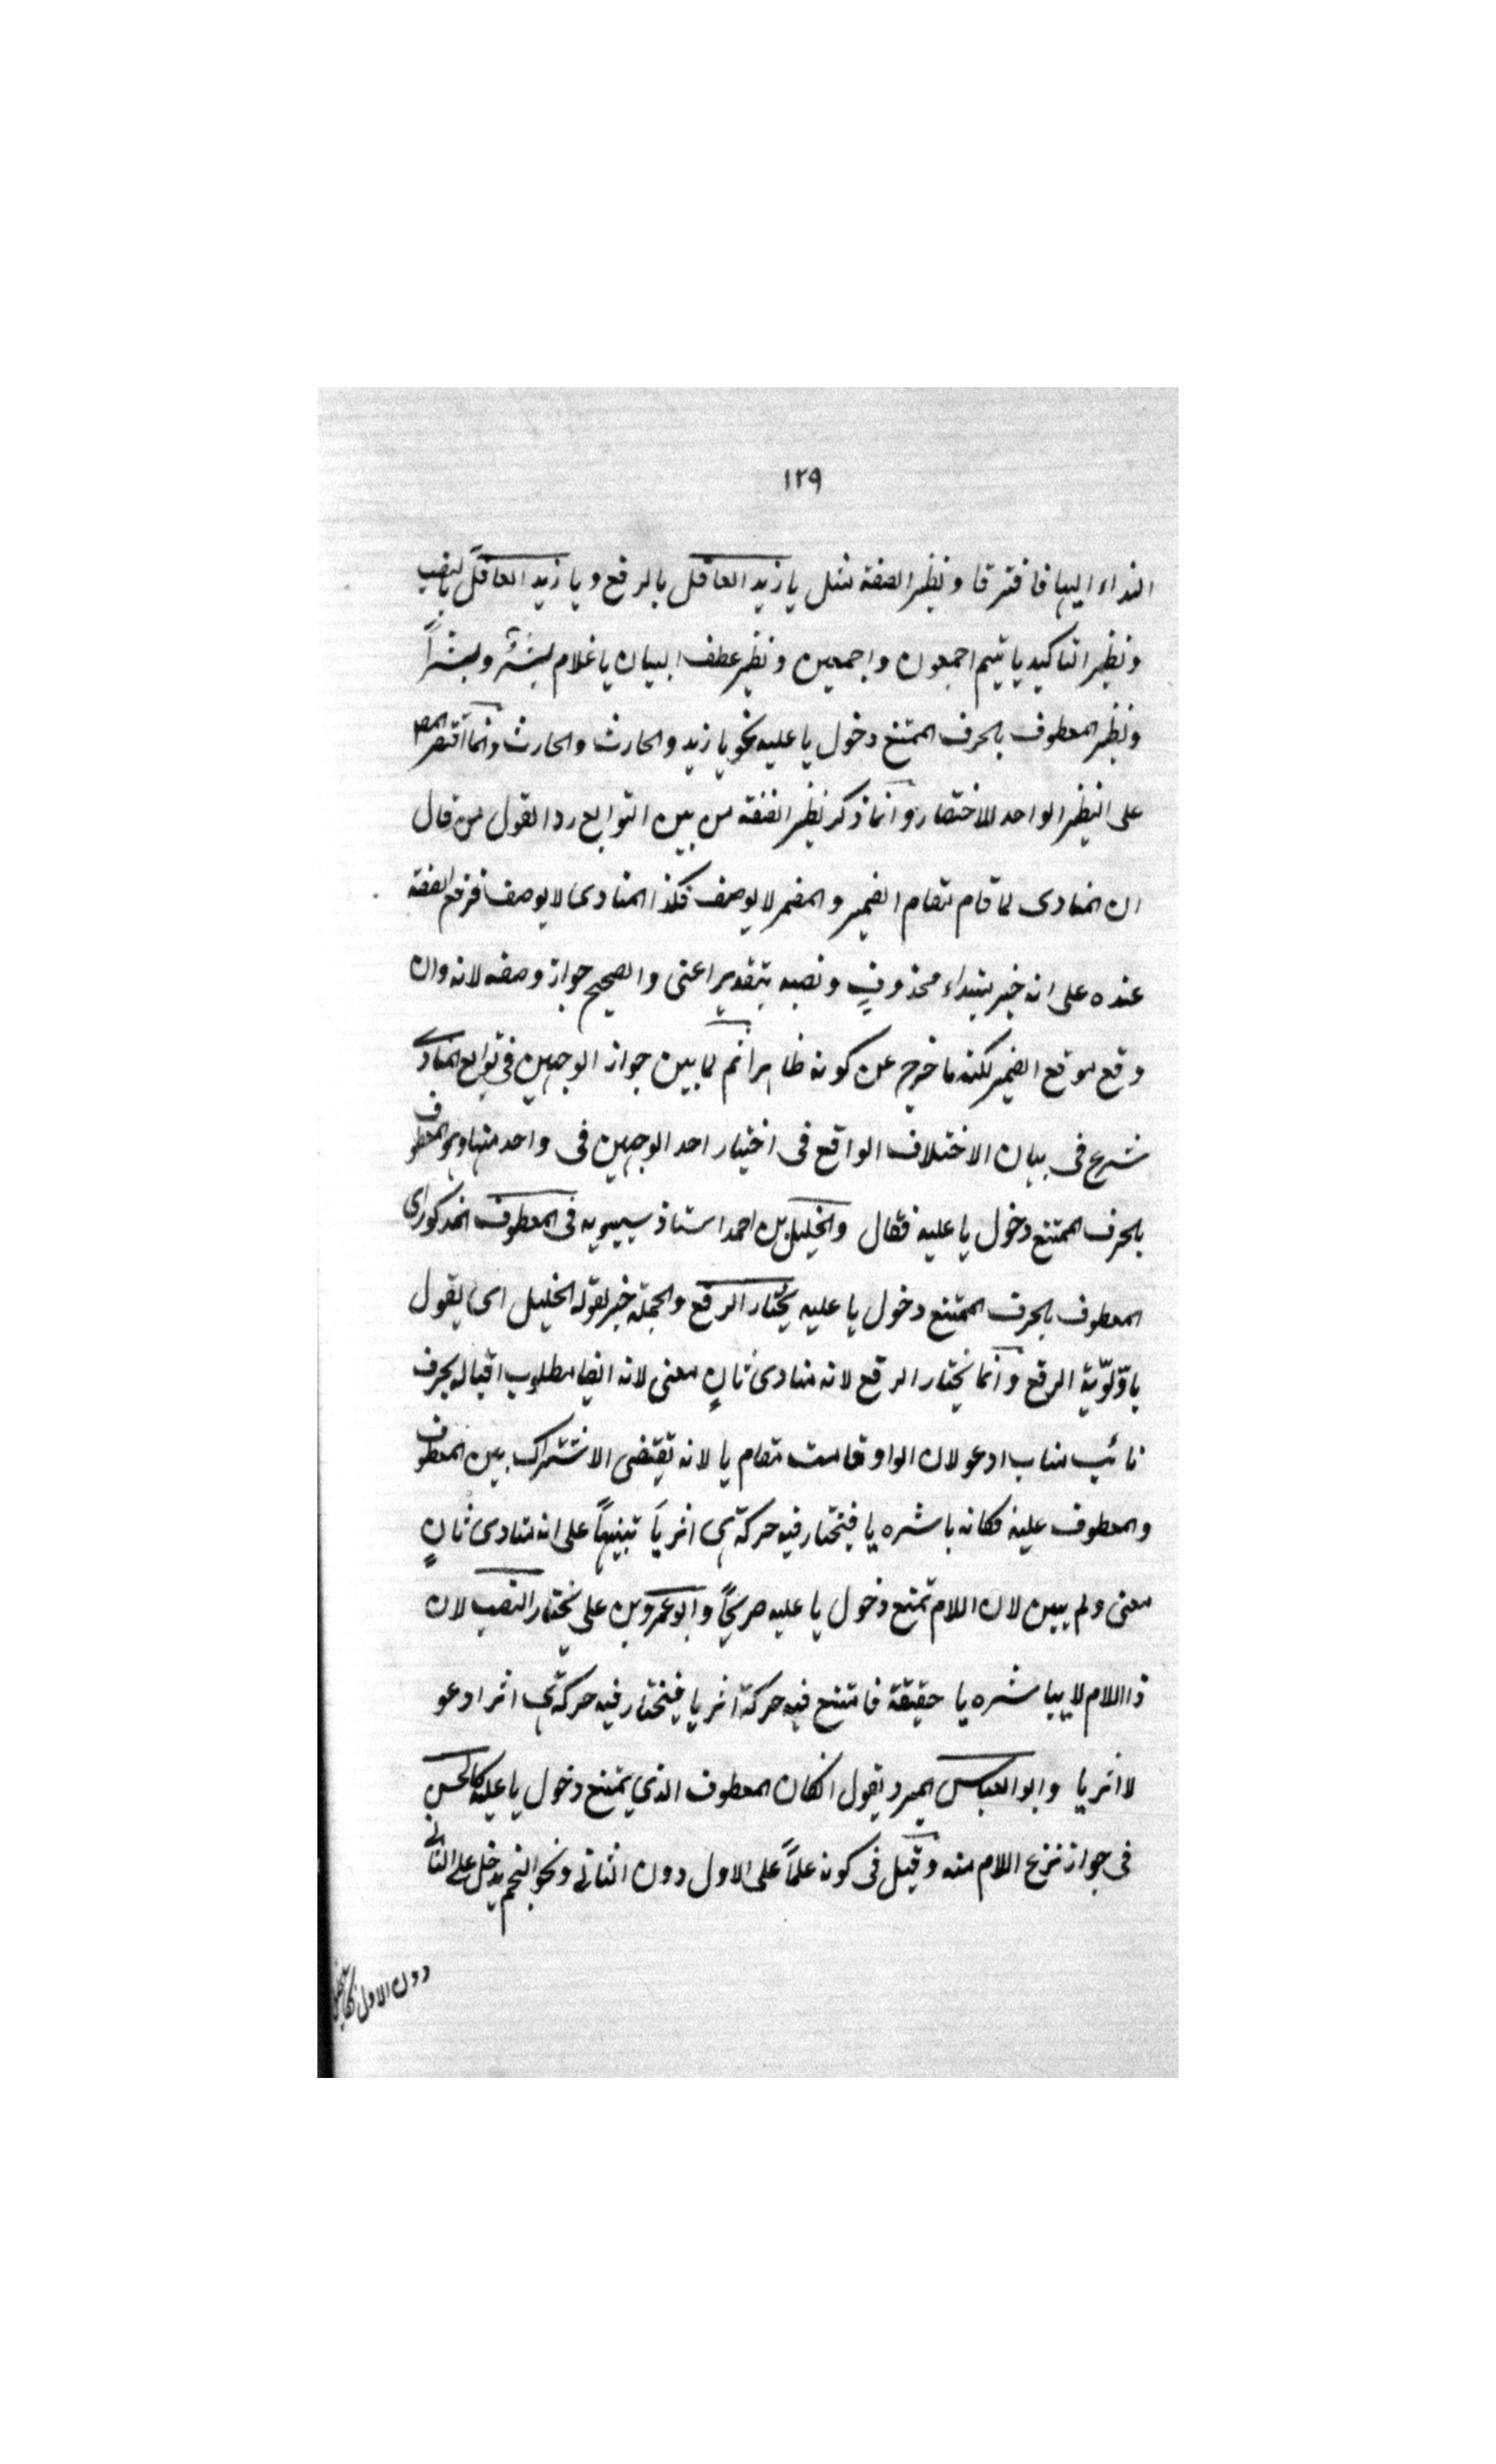 ١٢٩
النداء اليها فافترقا ونظير الصفة مثل يا زيد العاقل بالرفع و يا زيد العاقلَ بالنصب
ونظير التاكيد يا تيم اجمعون واجمعين ونظير عطف البيان يا غلام بشرٌ وبشراً
ونظير المعطوف بالحرف الممتنع دخول يا عليه نحو يا زيد والحارث والحارث وانما اقتصر المص
على النظير الواحد للاختصار وانما ذكر نظير الصفة من بين التوابع ردا لقول من قال
ان المنادى لما قام مقام الضمير والمضمر لا يوصف فكذا المنادى لا يوصف فرفع الصفة
عنده على انه خبر مبتداء محذوفٍ ونصبه بتقدير اعنى والصحيح جواز وصفه لانه وان
وقع موقع الضمير لكنه ما خرج عن كونه ظاهرا ثم لما بين جواز الوجهين فى توابع المنادى
شرع فى بيان الاختلاف الواقع فى اختيار احد الوجهين فى واحد منها وهو المعطوف
بالحرف الممتنع دخول يا عليه فقال والخليل بن احمد استاذ سيبويه فى المعطوف المذكور اى
المعطوف بالحرف الممتنع دخول يا عليه يختار الرفع والجملة خبر لقوله الخليل اى يقول
باوّلويّة الرفع وانما يختار الرفع لانه منادى ثانٍ معنى لانه ايضا مطلوب اقباله بحرف
نائب مناب ادعو لان الواو قامت مقام يا لانه تقتضى الاشتراك بين المعطوف
والمعطوف عليه فكانه باشره يا فيختار فيه حركة هى اثر يا تنبيهاً على انه منادى ثانٍ
معنى ولم يبين لان اللام تمنع دخول يا عليه صريحاً وابو عمرو بن على يختار النصب لان
ذا اللام لا يباشره يا حقيقة فامتنع فيه حركة اثر يا فيختار فيه حركة هى اثر ادعو
لا اثر يا وابو العباس المبرد يقول ان كان المعطوف الذي يمتنع دخول يا عليه كالحسن
فى جواز نزع اللام منه وقيل فى كونه علماً على الاول دون الثانى ونحو النجم يدخل على الثانى
دون الاول